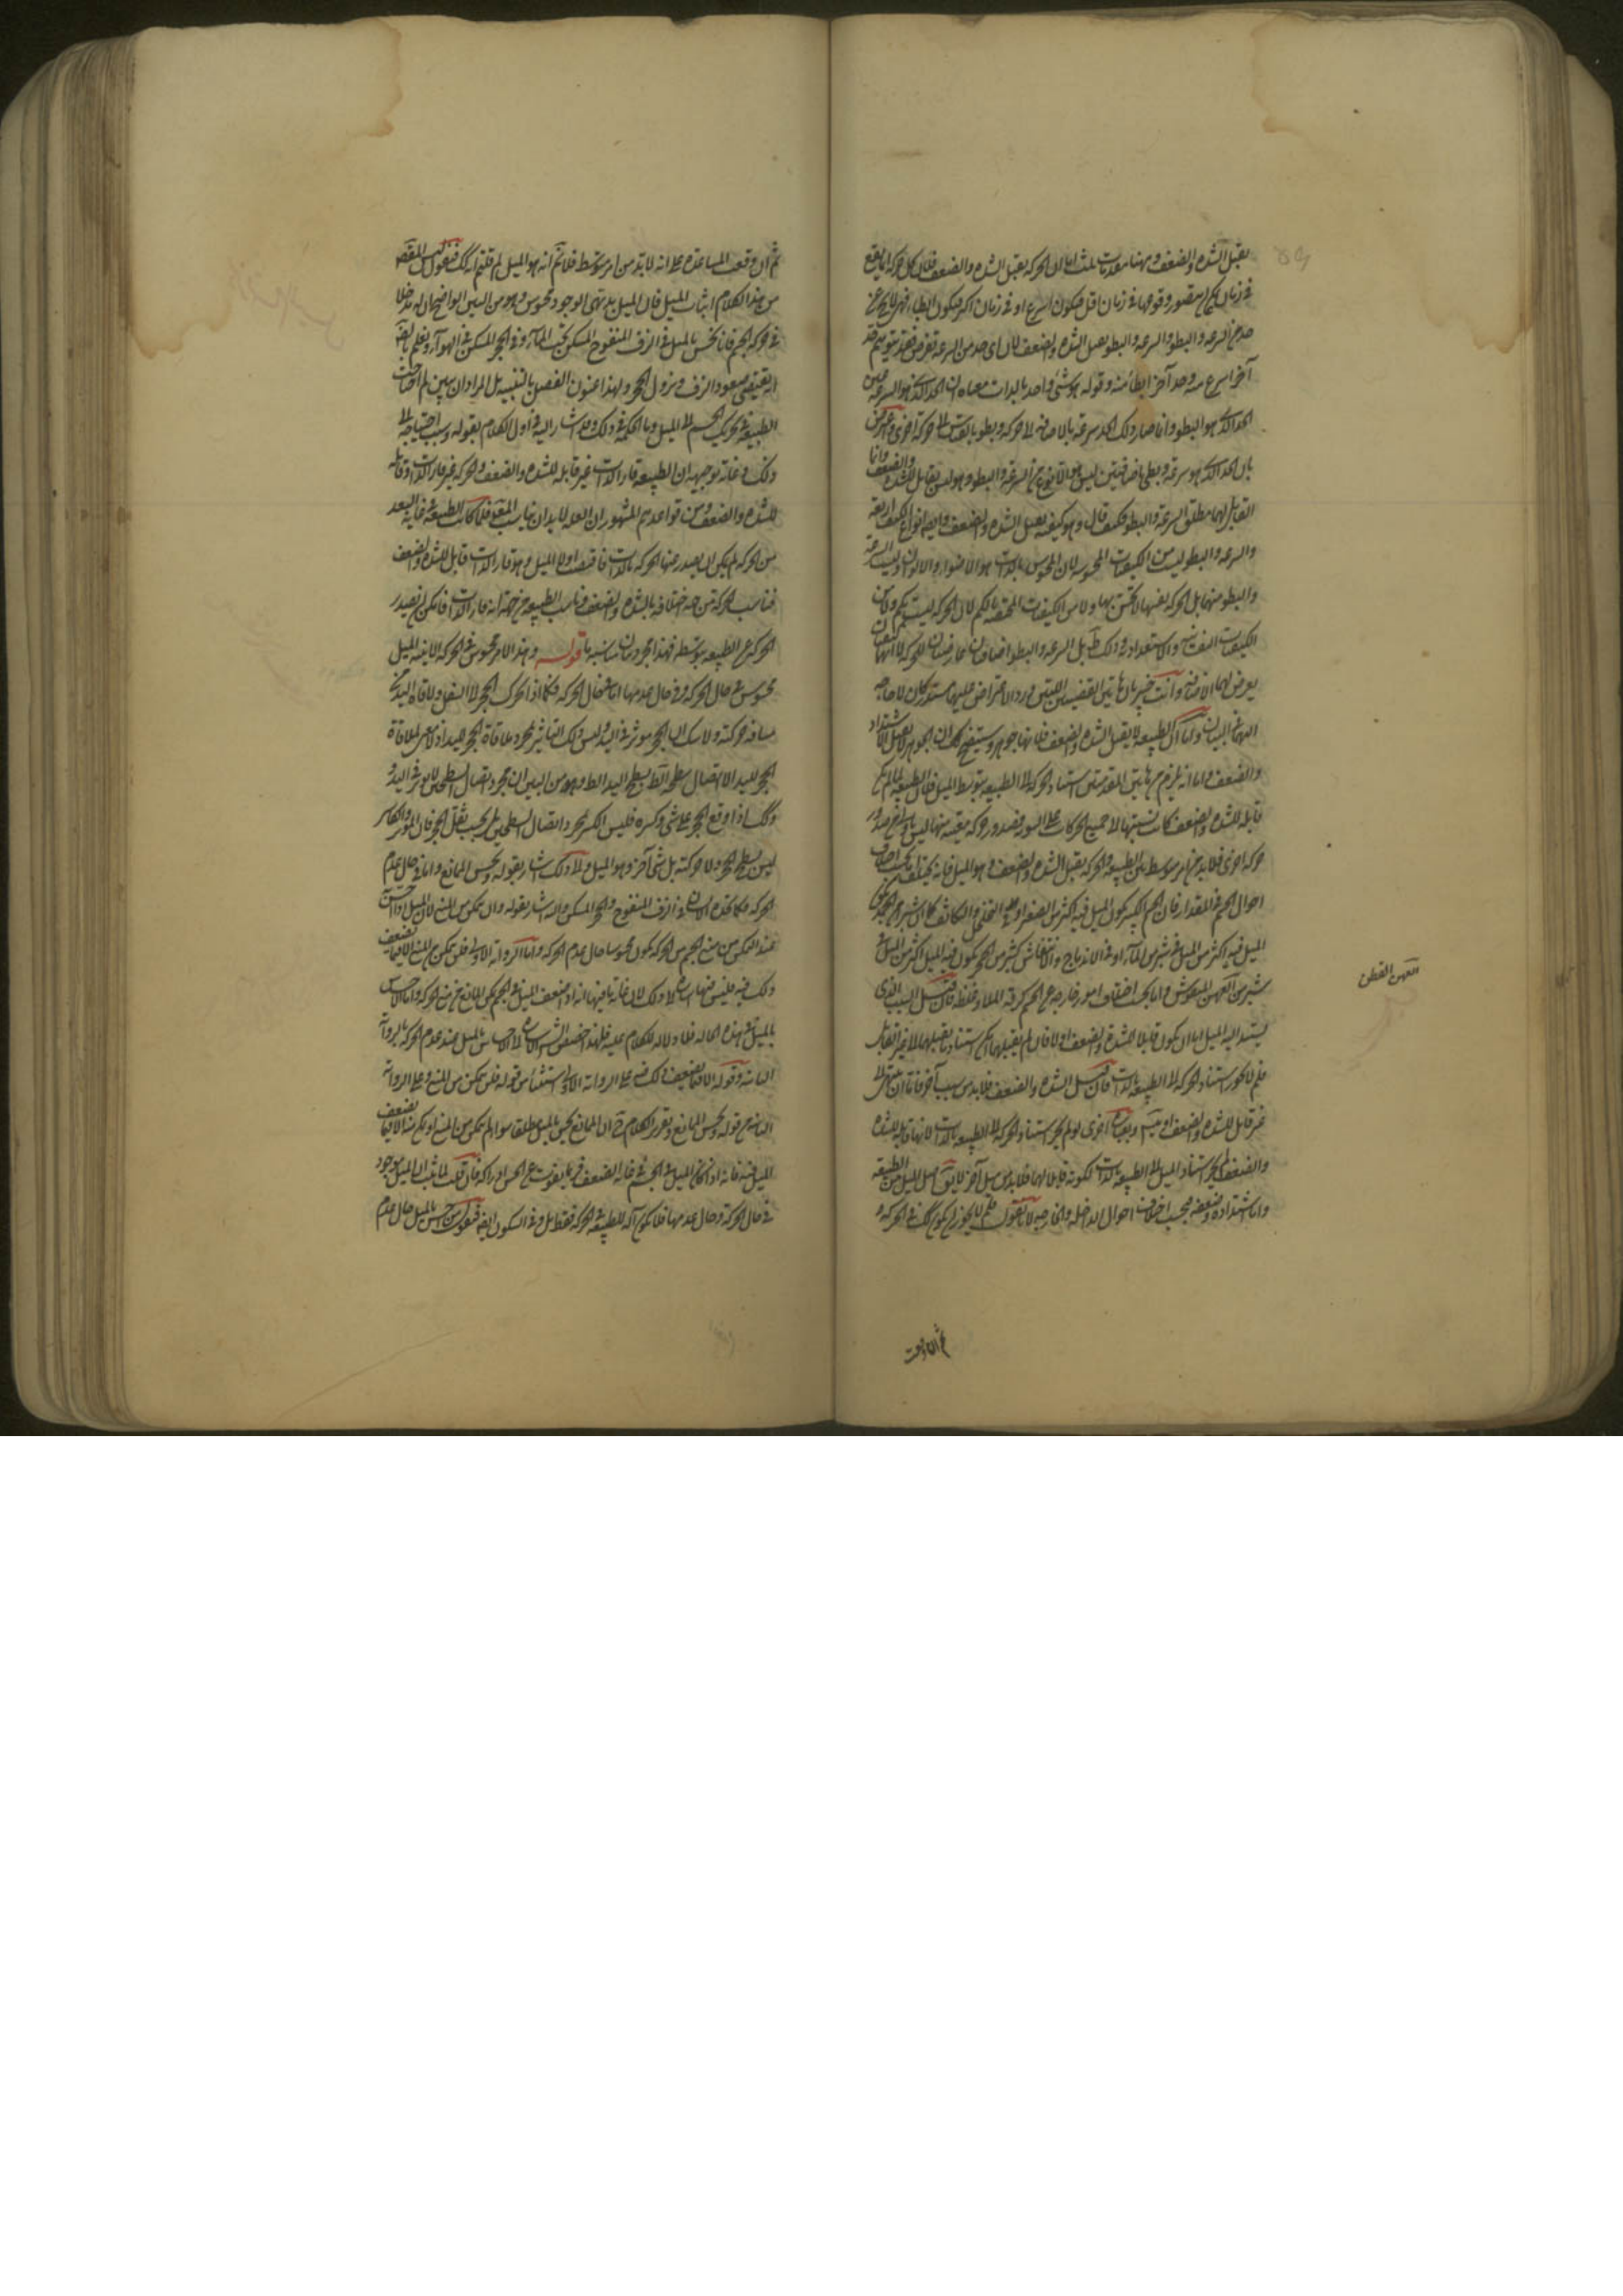 يقبل الشده والضعف وههنا مقدمات ثلث اما ان الحركه يقبل الشده والضعف فلان كل حركه انما يقع
في زمان يتصور وقوعها في زمان اقل فيكون اسرع او في زمان اكثر فيكون ابطأ فهي لا يخ عن
حد من السرعه والبطو والسرعه والبطو يقبل الشده والضعف لان اى حد من السرعه تفرض فقد يتوهم حد
آخر اسرع منه وحد آخر ابطأ منه وقوله هو شئ واحد بالذات معناه ان الحد الذى هو السرعه عين
الحد الذى هو البطو وانما صار ذلك الحد سرعه بالاضافه الى حركه وبطو بالقياس الى حركه اخرى
بان الحد الذى هو سرعه وبطى باضافتين ليس هو الانوع من السرعه والبطو وهو ليس بقابل للشده والضعف وانما
القابل لهما مطلق السرعه والبطو فكيف قال وهو كيفيه يقبل الشده والضعف وايضا انواع الكيف اربعه
والسرعه والبطو ليسا من الكيفيات المحسوسه لان المحسوس بالذات هو الاضواء والالوان وليست السرعه
والبطو منهما بل الحركه نفسها لا تحس بها ولا من الكيفيات المختصه بالكم لان الحركه ليست بكم ولا من
الكيفيات النفسانيه والاستعداديه وذلك ظ بل السرعه والبطو اضافتان عارضتان للحركه لا انهما كيفيتان
يعرض لهما الاضافة وانت خبير بان هاتين القضيتين اللتين ورد الاعتراض عليهما مستدركتان لا حاجه
اليهما في البيان واما ان الطبيعه لا يقبل الشده والضعف فلانها جوهر وسيتضح لك ان الجوهر لا يقبل الاشتداد
والضعف واما انه يلزم من هاتين المقدمتين استناد الحركه الى الطبيعه بتوسط الميل فلان الطبيعه لما لم يكن
قابله للشده والضعف كانت نسبتها الى جميع الحركات على السوا فصدور حركه معينه منها ليس باولى من صدور
حركه اخرى فلابد من امر متوسط بين الطبيعه والحركه يقبل الشده والضعف وهو الميل فانه يختلف بحسب اختلاف
احوال الجسم في المقدار فان الجسم الكبير يكون الميل فيه اكثر من الصغير او في التخلخل والتكاثف كما ان شبر من الحجر يكون
الميل فيه اكثر من الميل في شبر من الماء او في الاندماج والانتفاش كشبر من الحجر يكون فيه الميل اكثر من الميل في
شبر من العهن المنفوش واما بحسب اختلاف امور خارجه عن الجسم كرقه الملاء وغلظه فان قيل السبب الذى
يستند اليه الميل اما ان يكون قابلا للشده والضعف او لا فان لم يقبلهما لم يكن استناد ما يقبلهما الى غير القابل
فلم لا يجوز استناد الحركه الى الطبيعه بالذات وان قبل الشده والضعف فلابد من سبب آخر فاما ان ينتهى الى
غير قابل للشده والضعف او يتسلسل وبعباره اخرى لو لم يجز استناد الحركه الى الطبيعه بالذات لانها قابله للشده
والضعف لم يجز استناد الميل الى الطبيعه بالذات لكونه قابلا لهما فلابد من ميل آخر لا يقال اصل الميل من الطبيعه
واما اشتداده وضعفه بحسب اختلاف احوال الداخله والخارجه لانا نقول فلم لا يجوز ان يكون كك في الحركه و
العهن القطن
ثم ان وقعت
ثم ان وقعت المساعده على انه لا بد من امر متوسط فلا نم انه هو الميل لم قلتم انه كك فنقول ليس المقص
من هذا الكلام اثبات الميل فان الميل بديهى الوجود محسوس وهو من البين الواضح ان له مدخلا
في حركه الجسم فانا نحس بالميل في الزق المنفوخ المسكن تحت الماء وفي الحجر المسكن في الهواء ونعلم بالضر
انه يقتضى صعود الزق ونزول الحجر ولهذا عنون الفصل بالتنبيه بل المراد ان يبين لم احتاجت
الطبيعه في تحريك الجسم الى الميل وما الحكمه في ذلك وقد اشار اليه في اول الكلام بقوله وسبب احتياجه الى
ذلك وغاية توجيهه ان الطبيعه قار الذات غير قابله للشده والضعف والحركه غير قار الذات وقابله
للشده والضعف ومن قواعدهم المشهور ان العله لابد ان يناسب المعلول فلما كانت الطبيعه في غايه البعد
من الحركه لم يمكن ان يصدر عنها الحركه بالذات فاقتضت اولا الميل وهو قار الذات قابل للشده والضعف
فناسب الحركة من جهة اختلافه بالشده والضعف وناسب الطبيعه من جهة انه قار الذات فامكن ان يصدر
الحركه عن الطبيعه بتوسطه فهذا مجرد بيان مناسبه ما قوله وهذا الامر محسوس في الحركه الاينيه الميل
محسوس في حال الحركه وفي حال عدمها اما في حال الحركه فكما اذا تحرك الحجر الى السفل ولاقاه اليد في
مسافه حركته ولا شك ان الحجر موثر في اليد وليس ذلك التاثير لمجرد ملاقاة الحجر لليد اذ لا معنى لملاقاة
الحجر لليد الا اتصال سطحه الظ بسطح اليد الظ ومن البين ان مجرد اتصال السطحين لا يوثر في اليد و
كك اذا وقع الحجر على شئ وكسره فليس الكسر لمجرد اتصال السطحين بل بحسب ثقل الحجر فان الموثر والكاسر
ليس سطح الحجر ولا حركته بل شئ آخر وهو الميل والى ذلك اشار بقوله ويحس الممانع واما في حال عدم
الحركه فكما نجده في الزق المنفوخ والحجر المسكن واليه اشار بقوله وان تمكن من المنع لان الميل اذا احس
عند التمكن من منع الجسم من الحركه يكون محسوسا حال عدم الحركه واما الروايه الاولى فلن يتمكن من المنع الا فيما يضعف
ذلك فيه فليس فيها اشاره الى ذلك لان غايه ما فيها انه اذا ضعف الميل في الجسم تمكن الممانع من منع الحركه واما الاحساس
بالميل في هذه الحاله فلا دلاله للكلام عليه فلهذا خصص الشرح الاشاره الى الاحساس بالميل عند عدم الحركه بالروايه
الثانيه وقوله الا فيما يضعف ذلك فيه على الروايه الاولى استثناء من قوله فلن يتمكن من المنع وعلى الروايه
الثانيه من قوله ويحس الممانع وتقرير الكلام ح ان الممانع يحس بالميل مطلقا سوا لم يتمكن من المنع او تمكن منه الا فيما يضعف
الميل فيه فانه اذا كان الميل في الجسم في غايه الضعف فربما يفوت عن الحس ادراكه فان قلت لما ثبت ان الميل موجود
في حال الحركة وحال عدمها فلا يكون آله للطبيعه في الحركه فقط بل وفي السكون ايضا فنقول من احس بالميل حال عدم